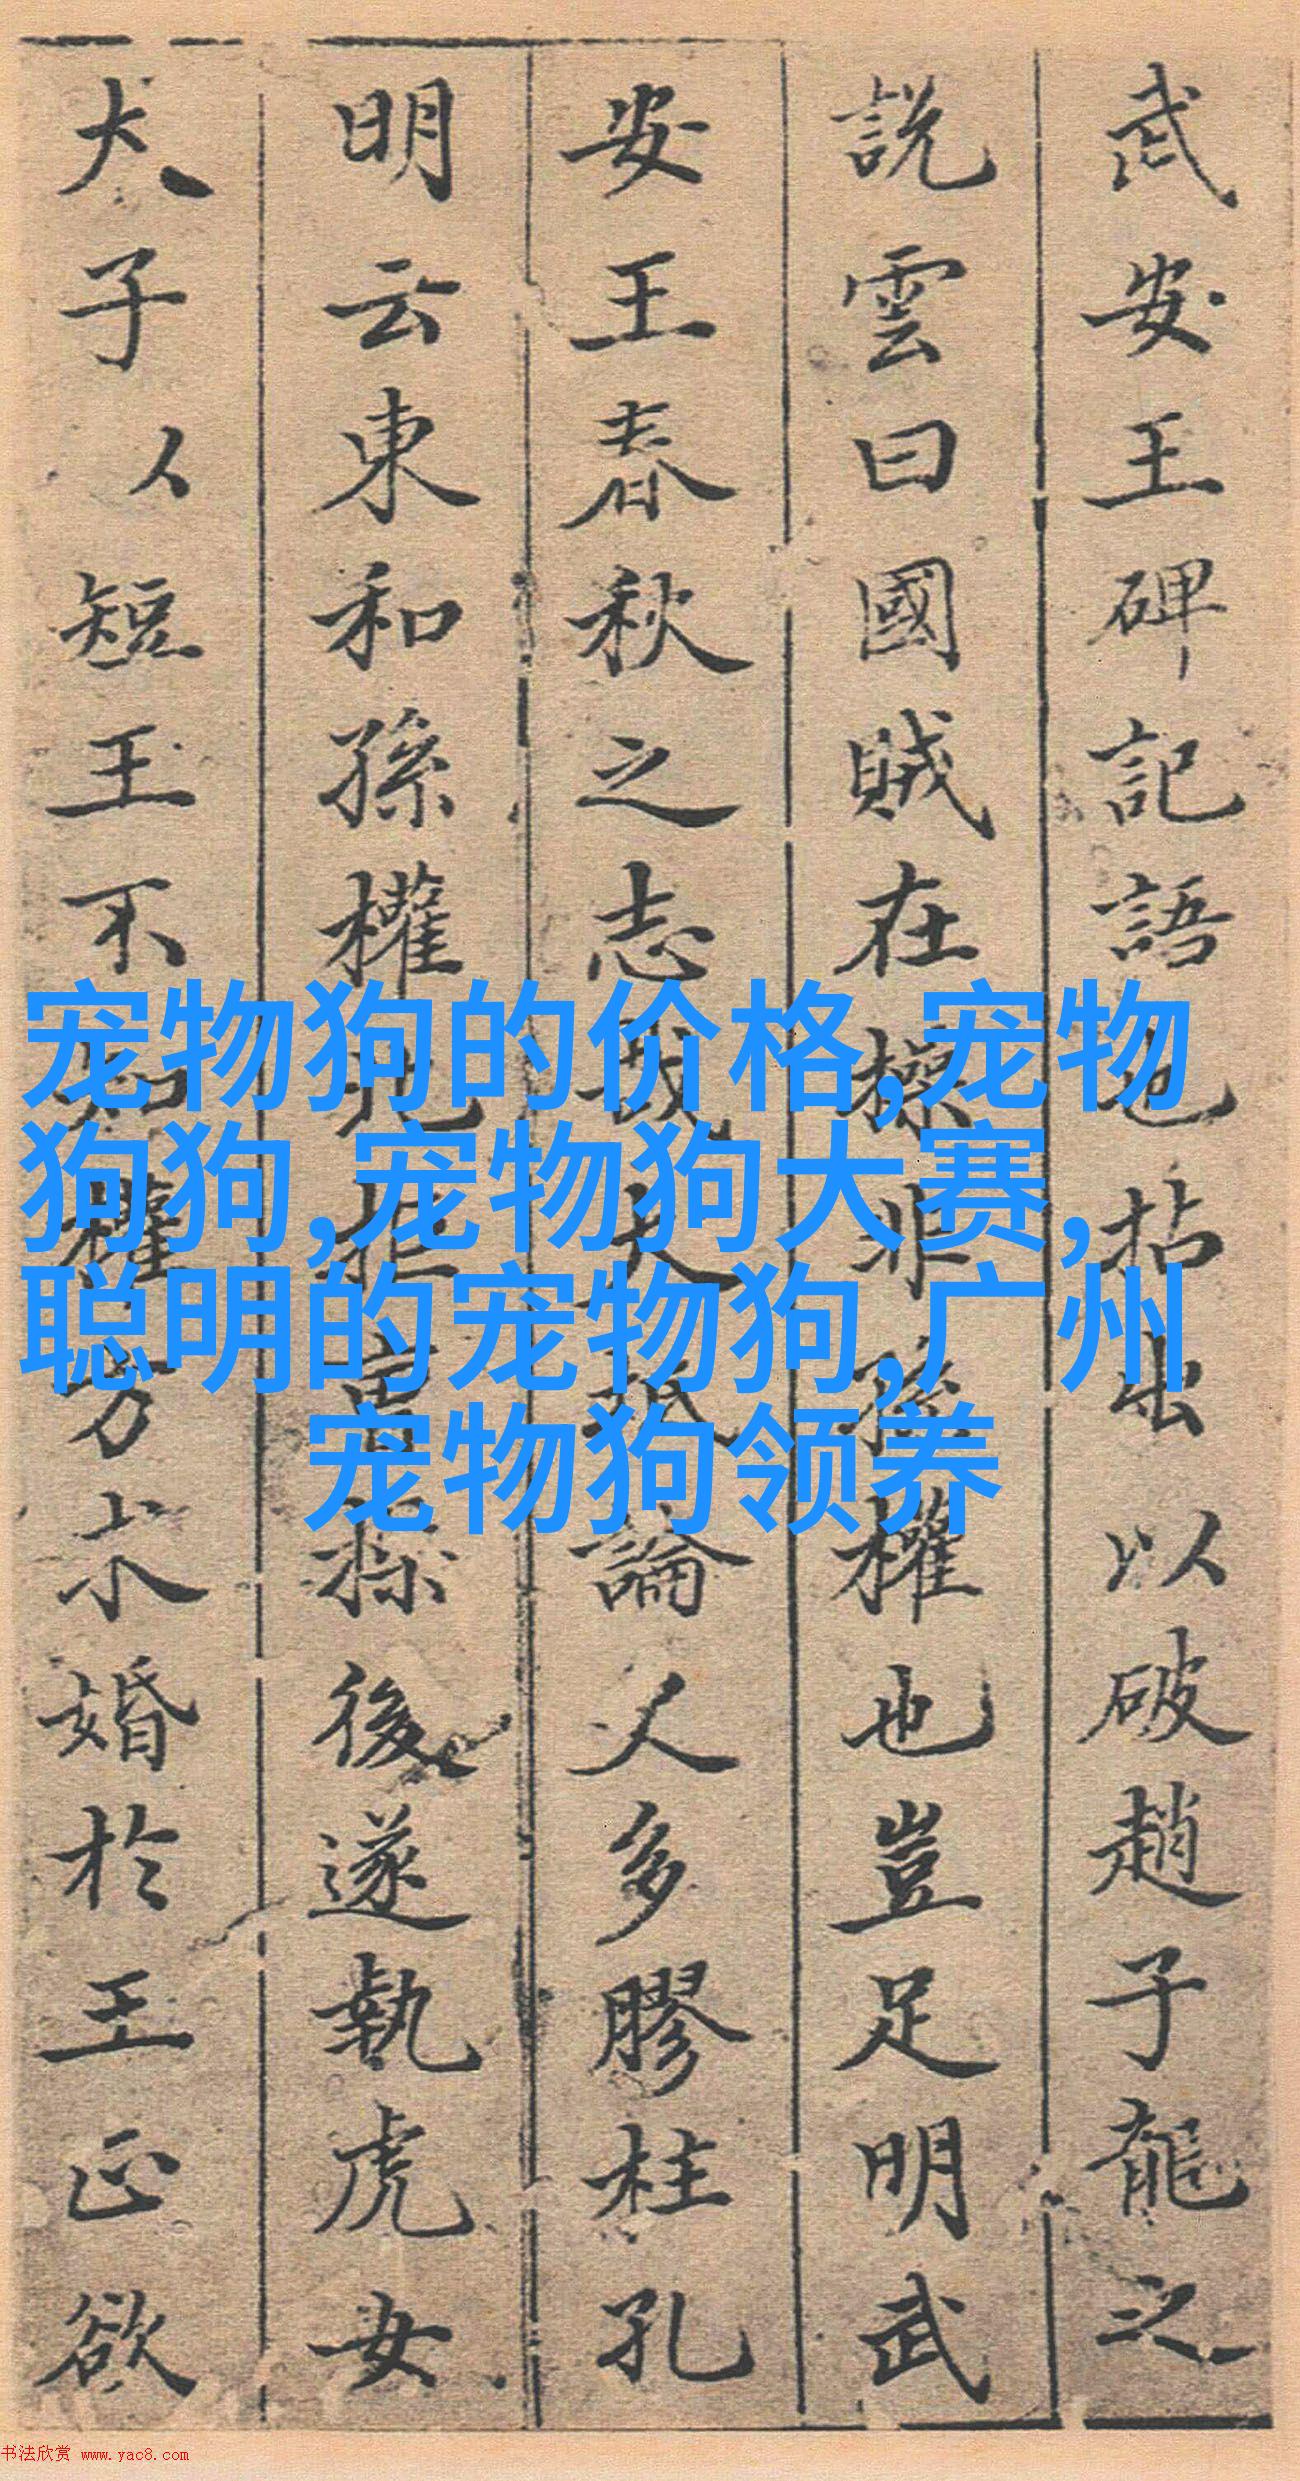 武安王碑記語也拈出以破趙子龍之
說雲曰國賊在操非孫權也豈足明武
安王春秋之志哉大抵論人多膠柱孔
明云東和孫權北拒曹操後遂執虎女
犬子以短王不知權方求婚於王正欲
宠物狗的价格,宠物
狗狗,宠物狗大赛,
聪明的宠物狗,广州
宠物狗领养
书法欣赏 www.yac8.com